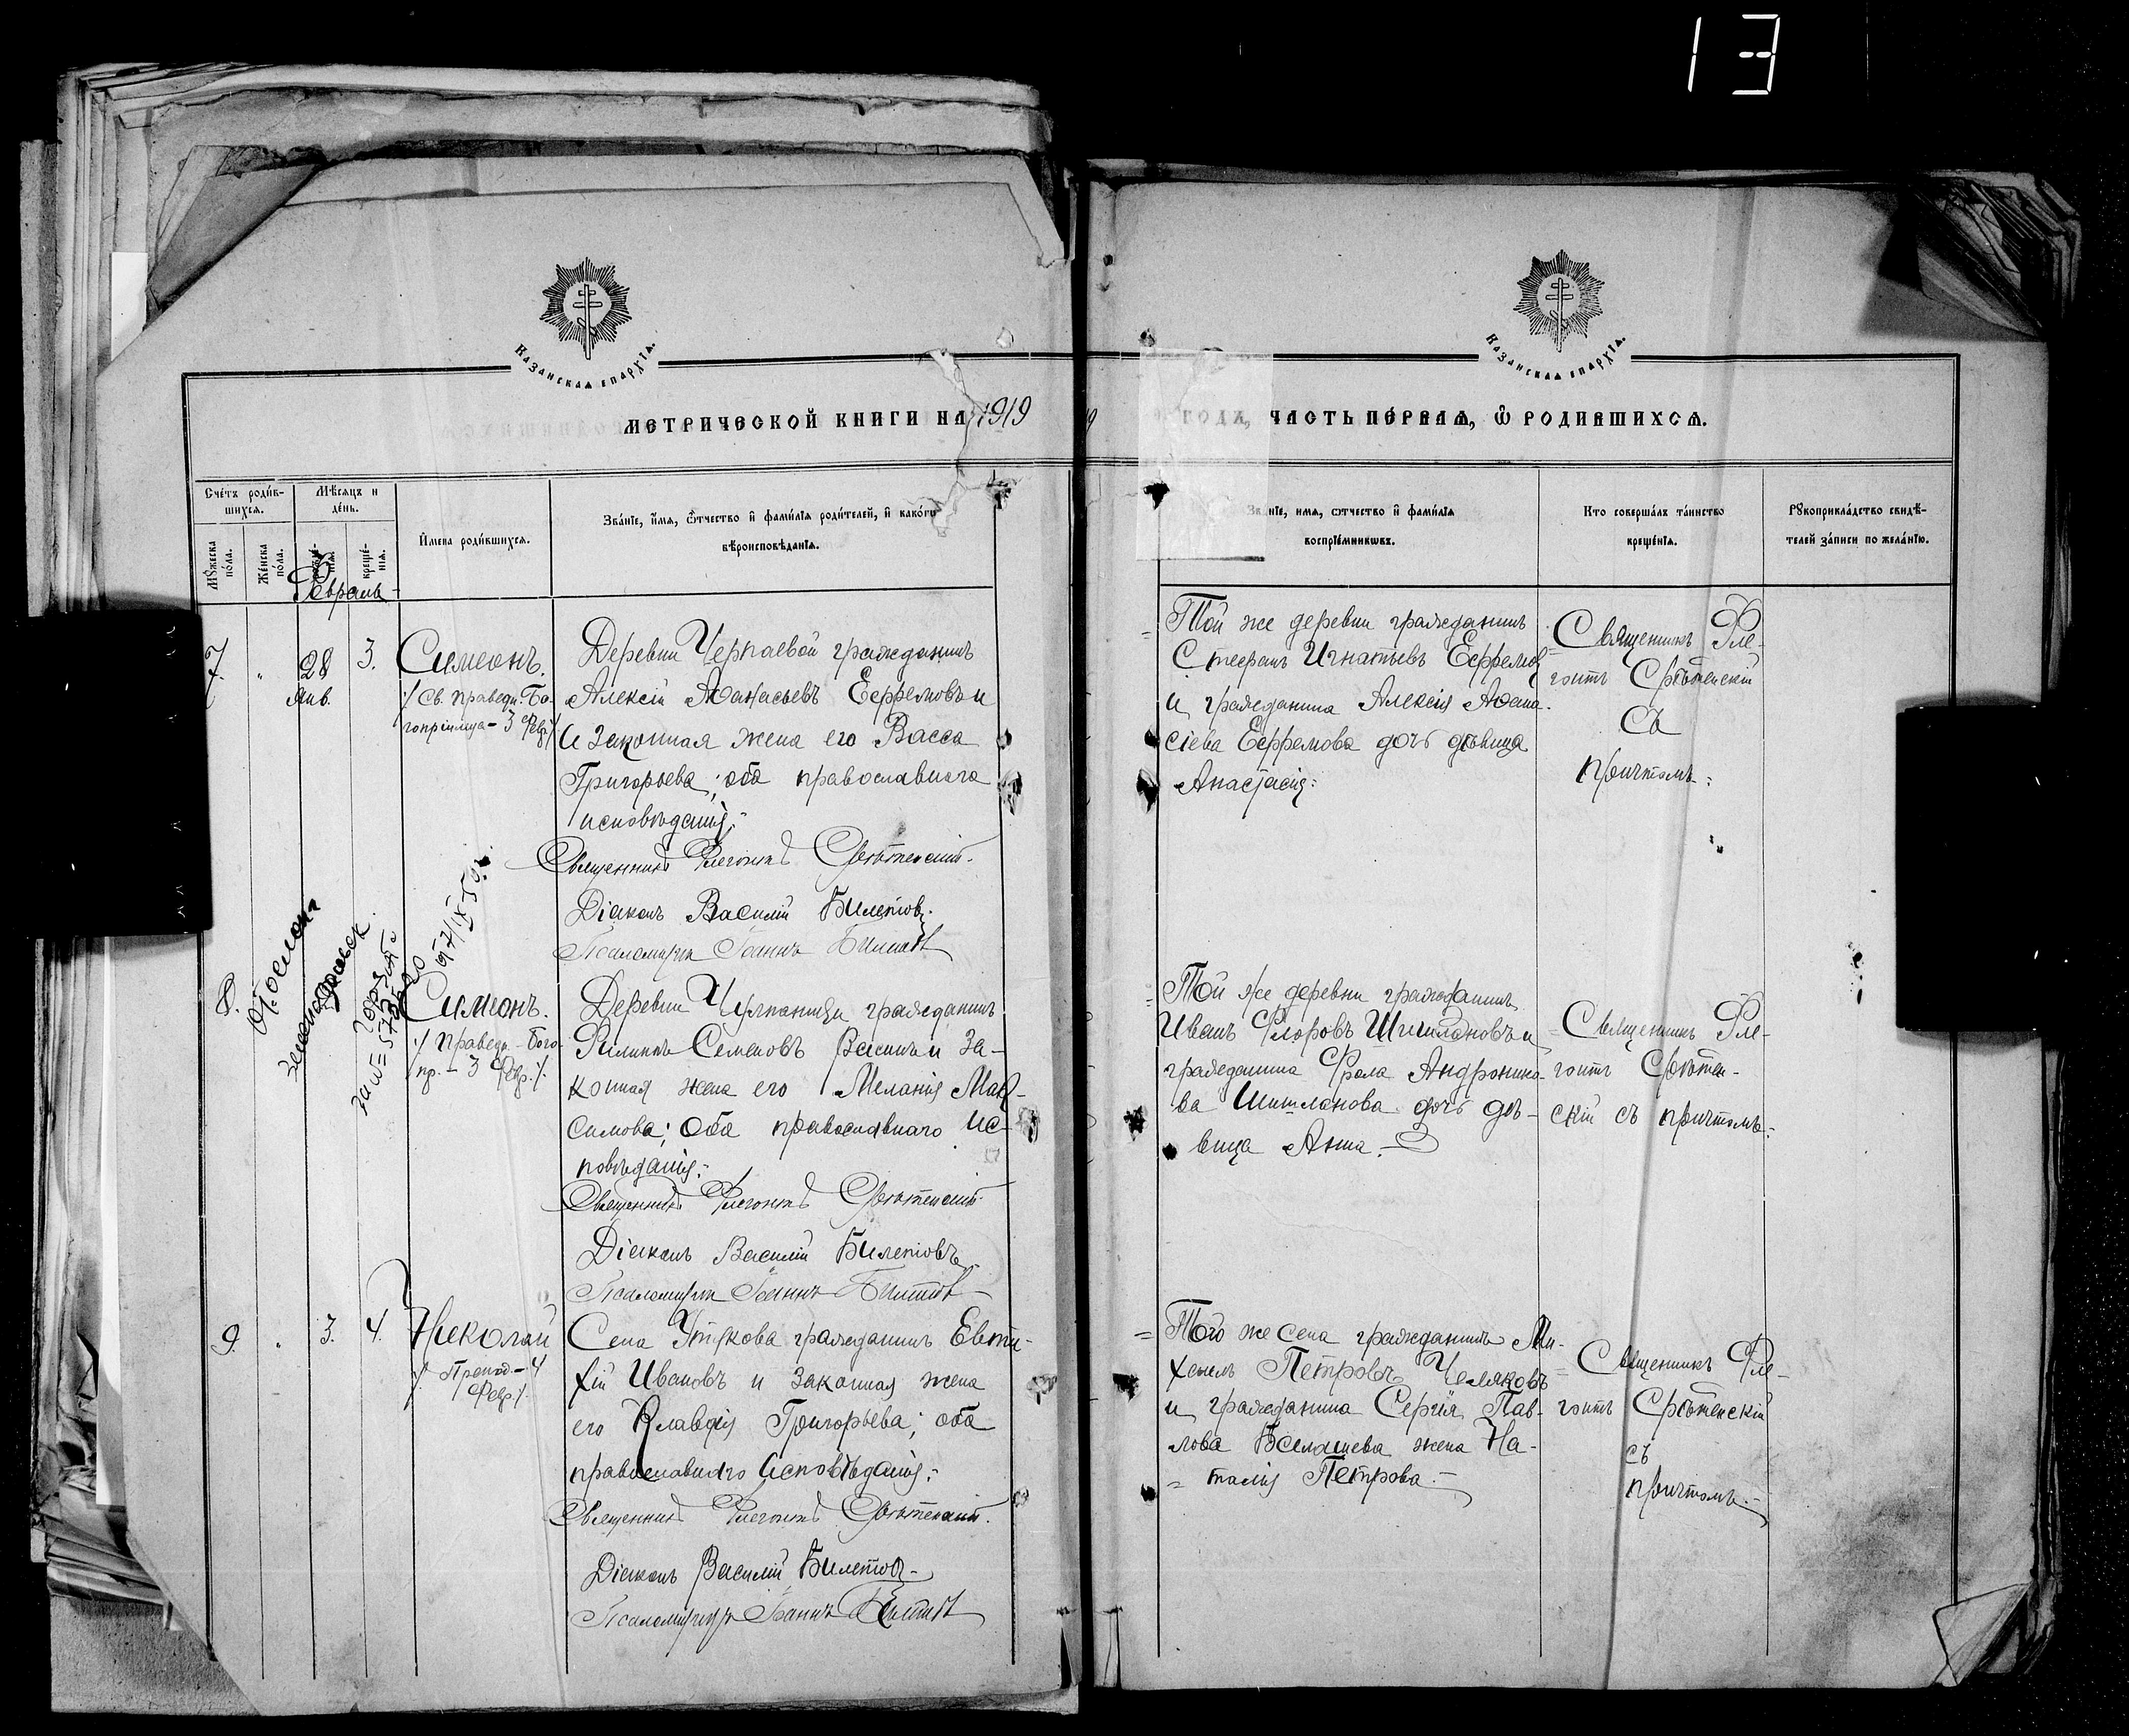 13
Казанская епархїѧ.
Казанская епархїѧ.
МЕТРИЧЕСКОЙ КНИГИ НА 1919
ГОДА, ЧАСТЬ ПЕ́РВАѦ, Ѽ РОДИВШИХСѦ.
Сче́тъ роди́в-
шихсѧ.
Мѣ́сѧцъ и
де́нь.
И҆мена роди́вшихсѧ.
Зва́нїе, и҆́мѧ, ѻ҆́тчество и҆ фами́лїѧ роди́телей, и҆ како́гѡ
вѣроисповѣ́данїѧ.
Мꙋ́жеска
по́ла.
Же́нска
по́ла.
креще́-
нїѧ.
Февраль
Зва́нїе, имѧ, ѻтчество и҆ фами́лїѧ
воспрїе́мникѡвъ.
Кто соверша́лъ та́инство
креще́нїѧ.
Рꙋкоприкла́дство свидѣ́-
телей за́писи по жела́нїю.
7. " 28 3. Симеонъ.
Янв.
Св. Праведн. Бо-
гопріимца - 3 Февр.
Деревни Черпаевой гражданинъ
Алексій Аѳанасьевъ Ефремовъ и
и законная жена его Васса
Григорьева; оба православнаго
исповѣданія;
Священникъ Флегонтъ Срѣтенскій.
Діаконъ Василій Билетовъ.
Псаломщикъ Іоаннъ
Той же деревни гражданинъ
Стефанъ Игнатьевъ Ефремовъ
и гражданина Алексія Аѳана-
сіева Ефремова дочь дѣвица
Анастасія:
Священникъ Фле-
гонтъ Срѣтенскій
съ
причтомъ:
8. Симеонъ.
Праведн. Бого-
пр. - 3 Февр.
Деревни гражданинъ
Филиппъ Семеновъ и за-
конная жена его Меланія Мак-
симова; оба православнаго ис-
повѣданія;
Священникъ Флегонтъ Срѣтенскій
Діаконъ Василій Билетовъ
Псаломщикъ Іоаннъ
Той же деревни гражданинъ
Иванъ Флоровъ Шишлановъ и
гражданина Фрола Андроника-
ва Шишланова дочь дѣ-
вица Анна.
Священникъ Фле-
гонтъ Срѣтен-
скій съ причтомъ:
9. " 3. 4. Николай
Препод. - 4
Февр.
Села Утякова гражданинъ Евти-
хій Ивановъ и законная жена
его Клавдія Григорьева; оба
православнаго исповѣданія;
Священникъ Флегонтъ Срѣтенскій.
Діаконъ Василій Билетовъ
Псаломщикъ Іоаннъ
Того же села гражданинъ Ми-
хаилъ Петровъ Челяковъ
и гражданина Сергія Пав-
лова жена На-
талія Петрова.
Священникъ Фле-
гонтъ Срѣтенскій
съ
причтомъ.